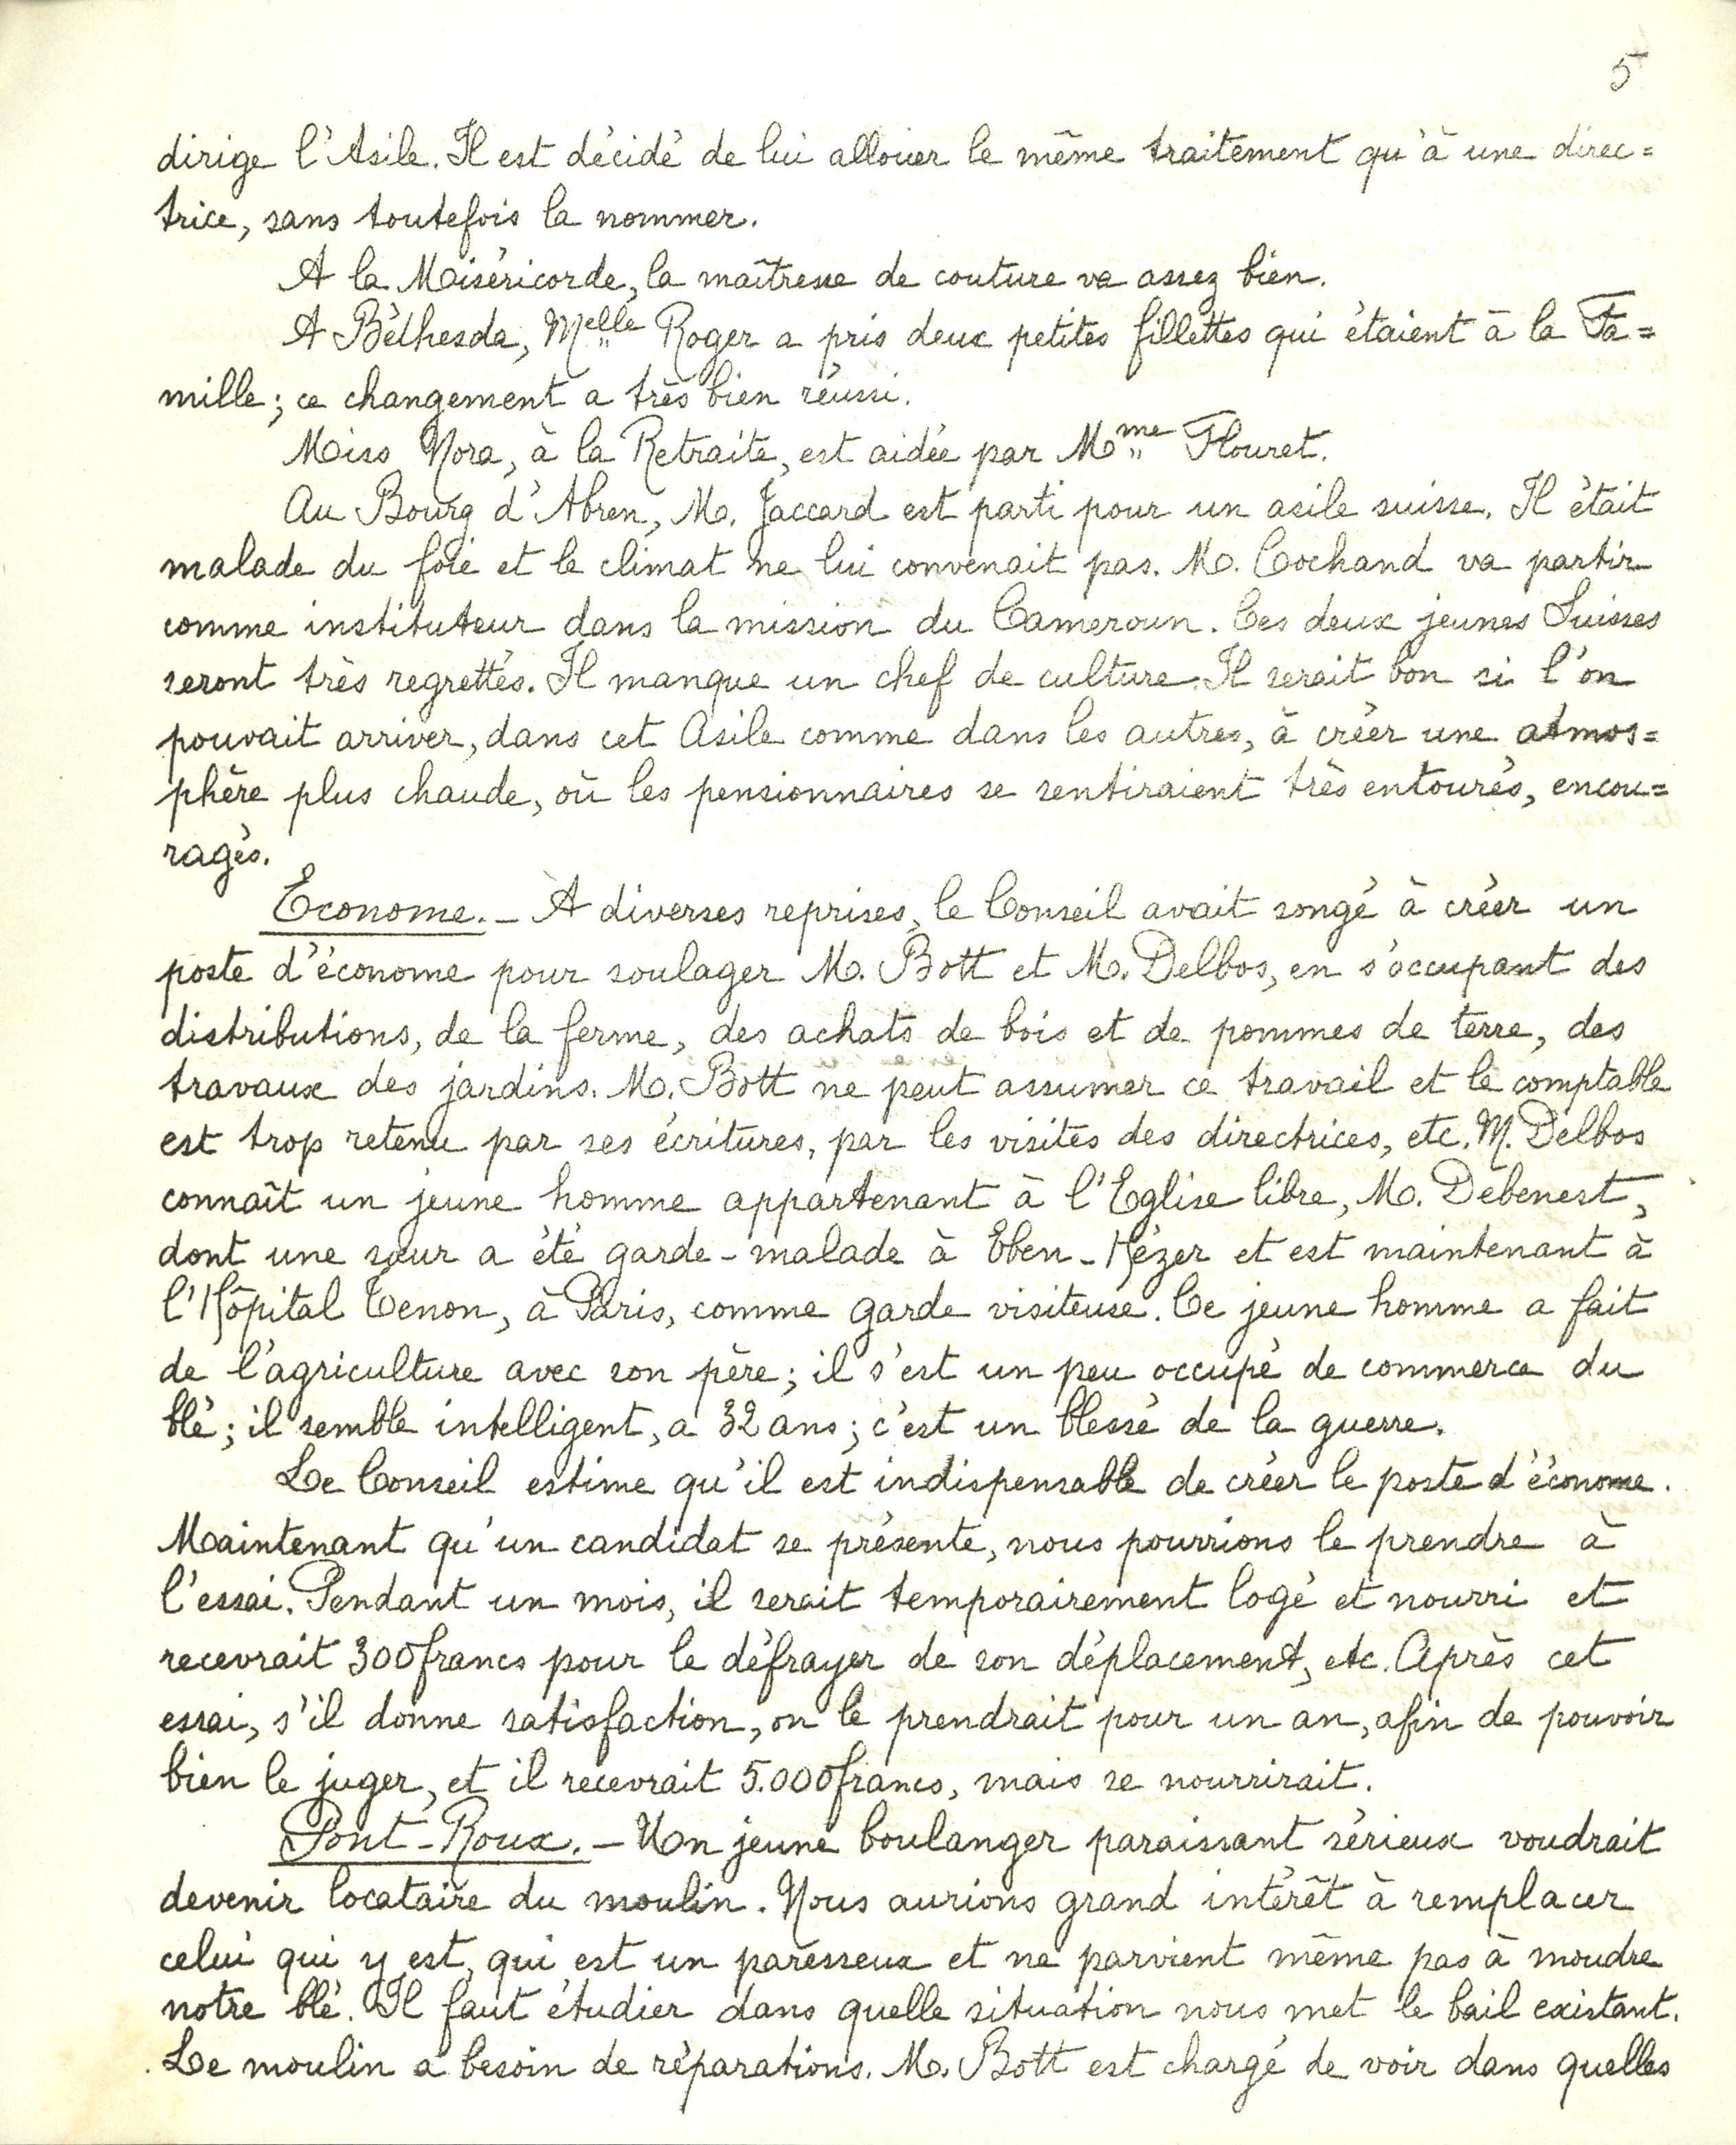 5
dirige l'Asile. Il est décidé de lui allouer le même traitement qu'à une direc=
trice, sans toutefois la nommer.
A la Miséricorde, la maîtresse de couture va assez bien.
A Béthesda, Melle Roger a pris deux petites fillettes qui étaient à la Fa=
mille; ce changement a très bien réussi.
Miss Nora, à la Retraite, est aidée par Mme Flouret.
Au Bourg d'Abren, M. Jaccard est parti pour un asile suisse. Il était
malade du foie et le climat ne lui convenait pas. M. Cochand va partir
comme instituteur dans la mission du Cameroun. Ces deux jeunes Suisses
seront très regrettés. Il manque un chef de culture. Il serait bon si l'on
pouvait arriver, dans cet Asile comme dans les autres, à créer une atmos=
phère plus chaude, où les pensionnaires se sentiraient très entourés, encou=
ragés.
Econome. - A diverses reprises, le Conseil avait songé à créer un
poste d'économe pour soulager M. Bott et M. Delbos, en s'occupant des
distributions, de la ferme, des achats de bois et de pommes de terre, des
travaux des jardins. M. Bott ne peut assumer ce travail et le comptable
est trop retenu par ses écritures, par les visites des directrices, etc. M. Delbos
connaît un jeune homme appartenant à l'Eglise libre, M. Debenest,
dont une sœur a été garde-malade à Eben-Hézer et est maintenant à
l'Hôpital Tenon, à Paris, comme garde visiteuse. Ce jeune homme a fait
de l'agriculture avec son père; il s'est un peu occupé de commerce du
blé; il semble intelligent, a 32 ans; c'est un blessé de la guerre.
Le Conseil estime qu'il est indispensable de créer le poste d'économe.
Maintenant qu'un candidat se présente, nous pourrions le prendre à
l'essai. Pendant un mois, il serait temporairement logé et nourri et
recevrait 300 francs pour le défrayer de son déplacement, etc. Après cet
essai, s'il donne satisfaction, on le prendrait pour un an, afin de pouvoir
bien le juger, et il recevrait 5.000 francs, mais se nourrirait.
Pont-Roux. - Un jeune boulanger paraissant sérieux voudrait
devenir locataire du moulin. Nous aurions grand intérêt à remplacer
celui qui y est, qui est un paresseux et ne parvient même pas à moudre
notre blé. Il faut étudier dans quelle situation nous met le bail existant.
Le moulin a besoin de réparations. M. Bott est chargé de voir dans quelles